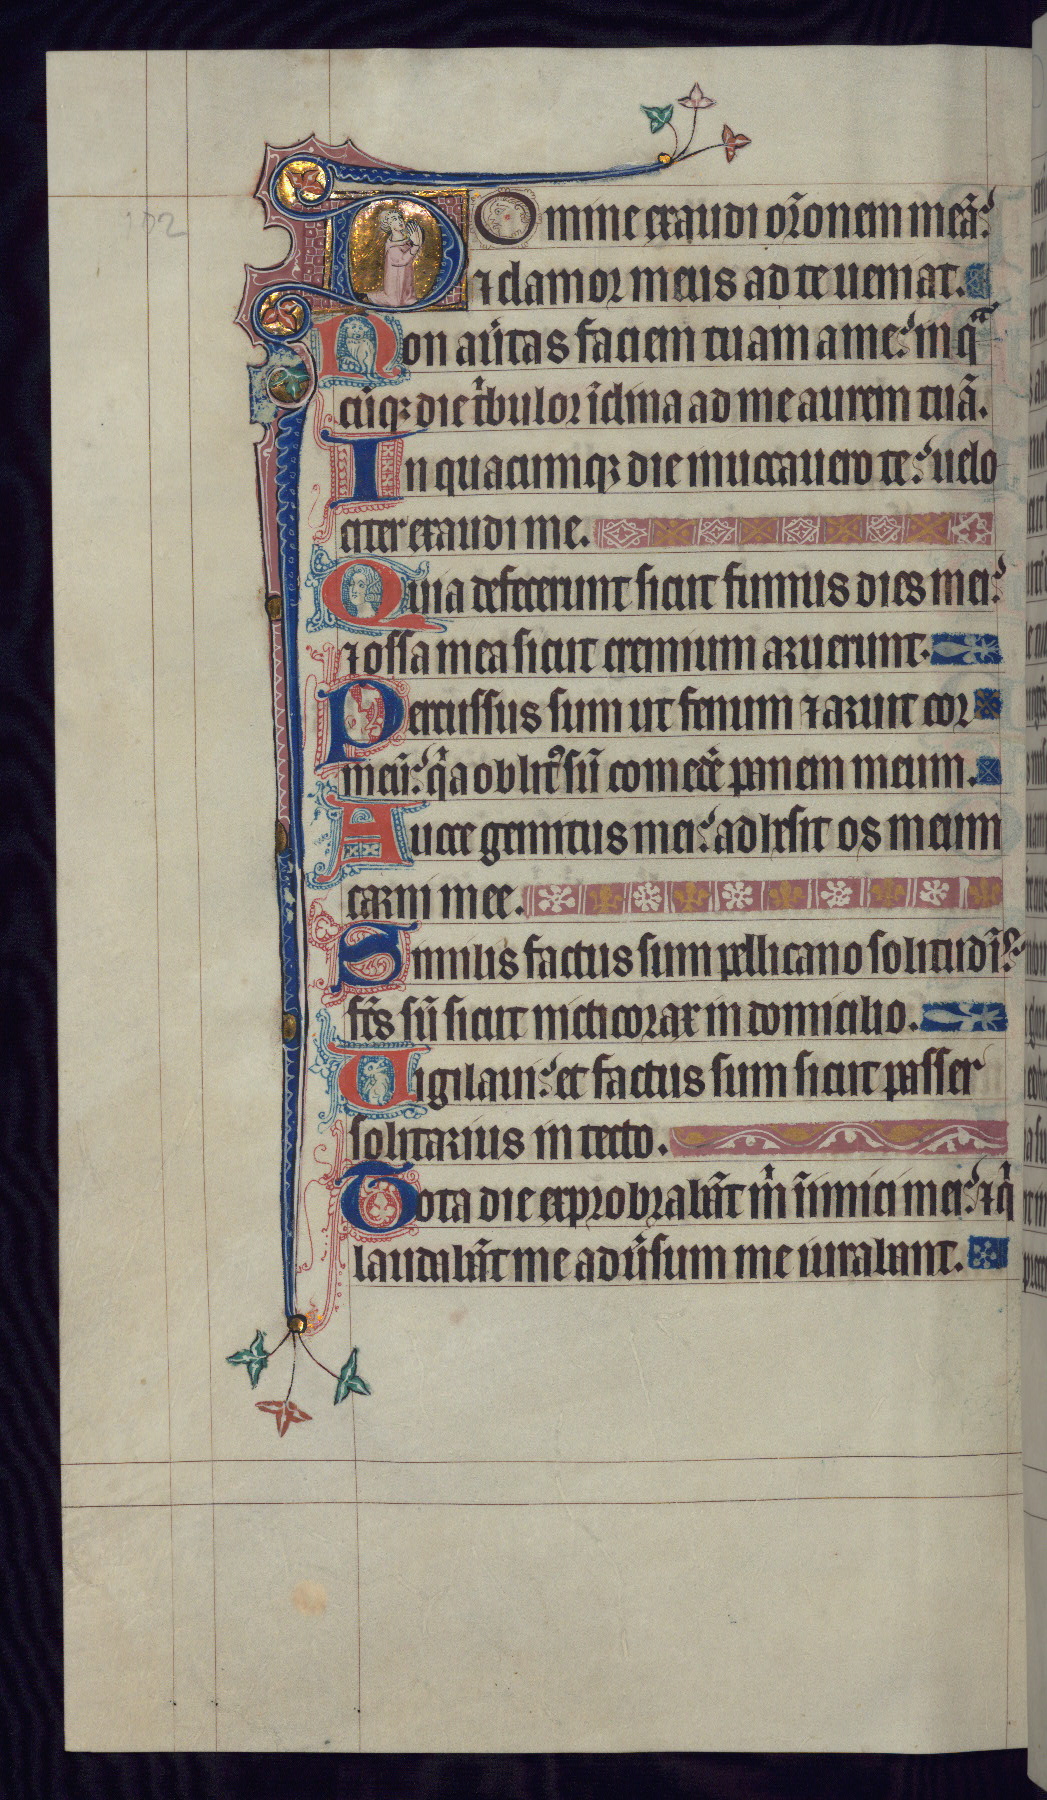 102
Domine exaudi or̄onem meā:
⁊ clamor meus ad te ueniat.
Non au̾tas faciem tuam a me: in qͣ
cūqꝫ die t̾bulor īclina ad me aurem tuā.
In quacumqꝫ die inuocauero te: uelo
citer exaudi me.
Quia defecerunt sicut fumus dies mei:
⁊ ossa mea sicut cremium aruerunt.
Percussus sum ut fenum ⁊ aruit cor
meū: qͥa oblitꝰ sū comedē panem meum.
A uoce gemitus mei: adhesit os meum
carni mee.
Similis factus sum pellicano solitudīs:
fc̄s sū sicut nicticorax in domicilio.
Uigilaui: et factus sum sicut passer
solitarius in tecto.
Tota die exprobrabāt m̄ inimici mei: ⁊ qͥ
laudabāt me adu̾sum me iurabant.